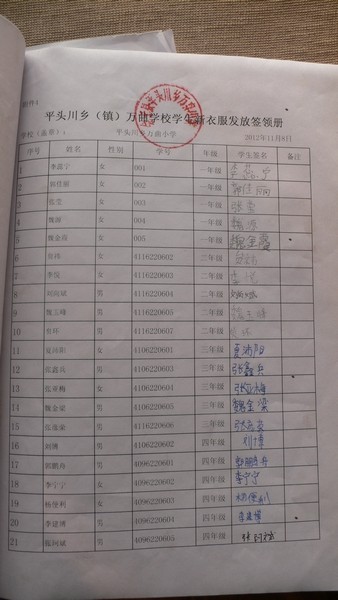 附件4
平头川乡（镇）万曲学校学生新衣服发放签领册
学校（盖章）： 平头川乡万曲小学 2012年11月8日
序号 姓名 性别 学号 年级 学生签名 备注
1 女 001 一年级
2 女 002 一年级
3 张莹 女 003 一年级 张莹
4 女 004 一年级
5 魏金霞 女 005 一年级 魏金霞
6 女 4116220602 二年级
7 李悦 女 4116220603 二年级 李悦
8 刘向斌 男 4116220605 二年级
9 魏玉峰 男 4116220606 二年级 魏玉峰
10 男 4116220607 二年级
11 夏沛阳 女 4106220601 三年级 夏沛阳
12 张鑫兵 男 4106220602 三年级 张鑫兵
13 张亚梅 女 4106220604 三年级 张亚梅
14 魏金梁 男 4106220605 三年级 魏金梁
15 男 4116220606 三年级
16 刘博 男 4106220602 四年级 刘博
17 郭鹏舟 男 4096220601 四年级 郭鹏舟
18 李宁宁 女 4096220602 四年级 李宁宁
19 杨便利 女 4096220603 四年级 杨便利
20 李建博 男 4096220604 四年级 李建博
21 张问斌 男 4096220605 四年级 张问斌